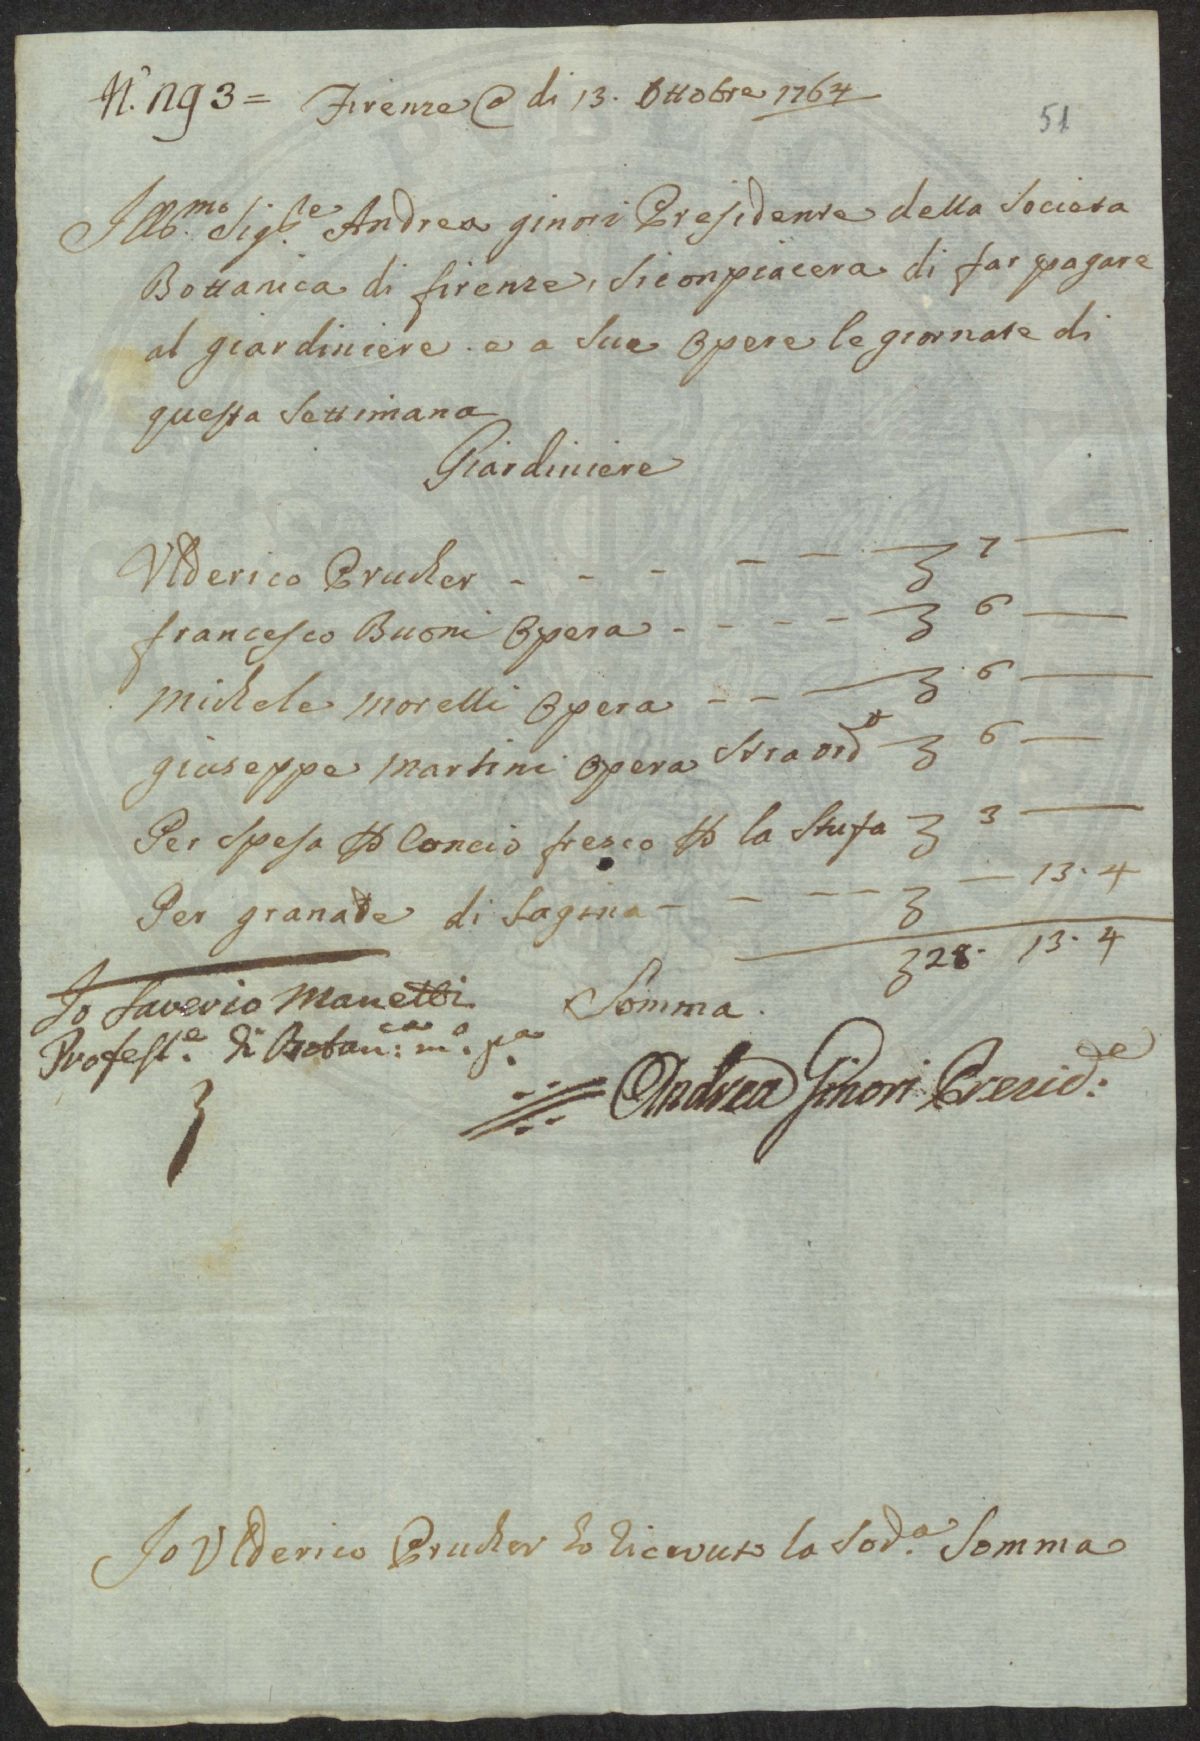 N. 1193 = Firenze @ di 13. Ottobre 1764
51
Illb.mo Sig.le Andrea ginori Presidente della Societa
Bottanica di firenze, si conpiacera di far pagare
al giardiniere e a sue Opere le giornate di
questa Settimana
Giardiniere
Ulderico Prucher - - - - - 7 —
francesco Buoni Opera - - - - 6 —
Michele Morelli Opera - - — 6 —
giuseppe Martini Opera Straord.o 6 —
Per spesa p Concio fresco p la Stufa 3 —
Per granate di Sagina - - - - — 13. 4
28. 13. 4
Somma.
Io Saverio Manetti
Profess.e di Botan:ca m.o p.a
Andrea Ginori Presid:e
Io Ulderico Prucher ho ricevuto la sod.a Somma